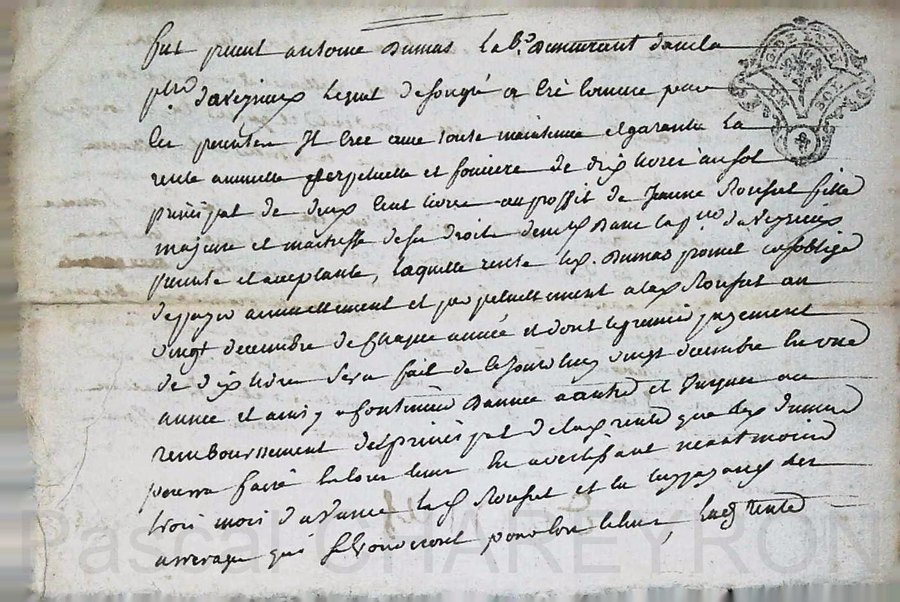 fut presnt antoine Dumas lab.r Demeurant dans la
p.sse d'aveyzieux lequel de son gré a créé comme par
les presentes Il cree avec toute maintenue et garantie La
rente annuelle perpetuelle et fonciere de dix livres au sol
principal de deux Cent livres au proffit de Jeanne Rouset fille
majeure et maitresse de ses droits demt Dans la p.sse d'aveyzieux
presente et acceptante, laquelle rente led. Dumas promet et s'oblige
de payer annuellement et perpetuellement a lad Rouset au
vingt decembre de Chaque année et dont le premier payement
de dix livres sera fait de ce Jourdhuy vingt decembre En une
année et ainsi a Continuer D'année a autre et Jusques au
remboursement du principal de lad rente que led dumas
pourra faire En avertissant neantmoins
trois mois d'avance lad Rouset et en luy payant les
arrerages qui seront pour lors , lad rente
Pascal CHAREYRON